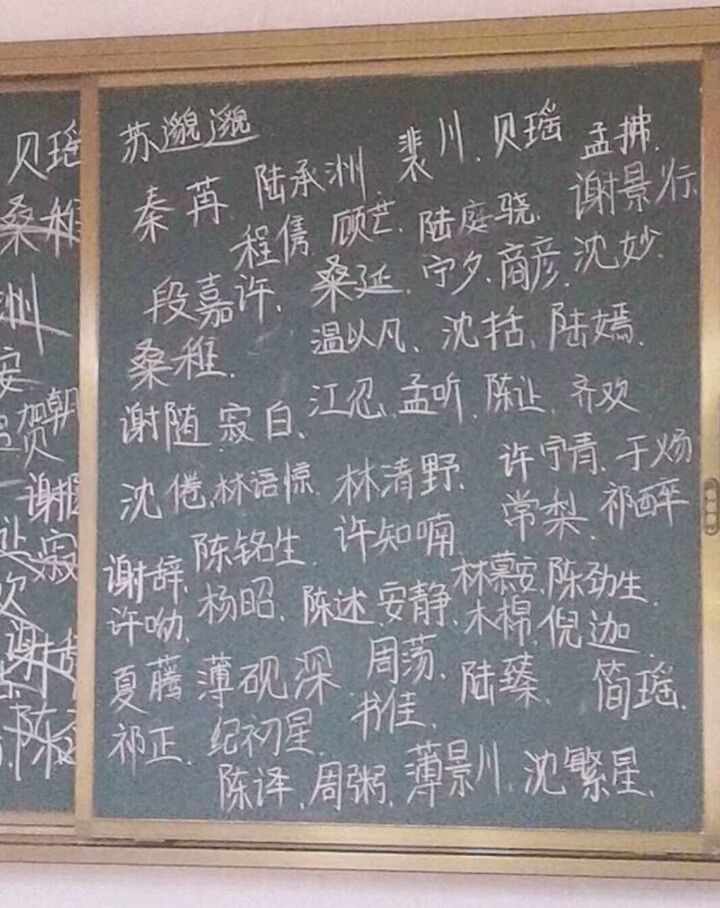 贝瑶
桑稚
洲
安
贺朝
谢
让 寂
欢
谢辞
陈
苏邈邈 裴川、贝瑶 孟拂、
秦苒 陆承洲 谢景行、
程隽 顾芒、陆庭骁、
段嘉许、桑延、宁夕、商彦、沈妙、
桑稚、温以凡、沈括、陆嫣、
谢随 寂白、江忍、孟听、陈让、齐欢
沈倦、林语惊、林清野、许宁青、于炀
陈铭生、许知喃 常梨、祁醉
谢辞、杨昭、陈述、安静、林慕安、陈劲生、
许呦、木棉、倪迦、
夏藤 薄砚深 周荡、陆臻、简瑶、
祁正、纪初星、书佳、
陈译、周粥、薄景川、沈繁星、